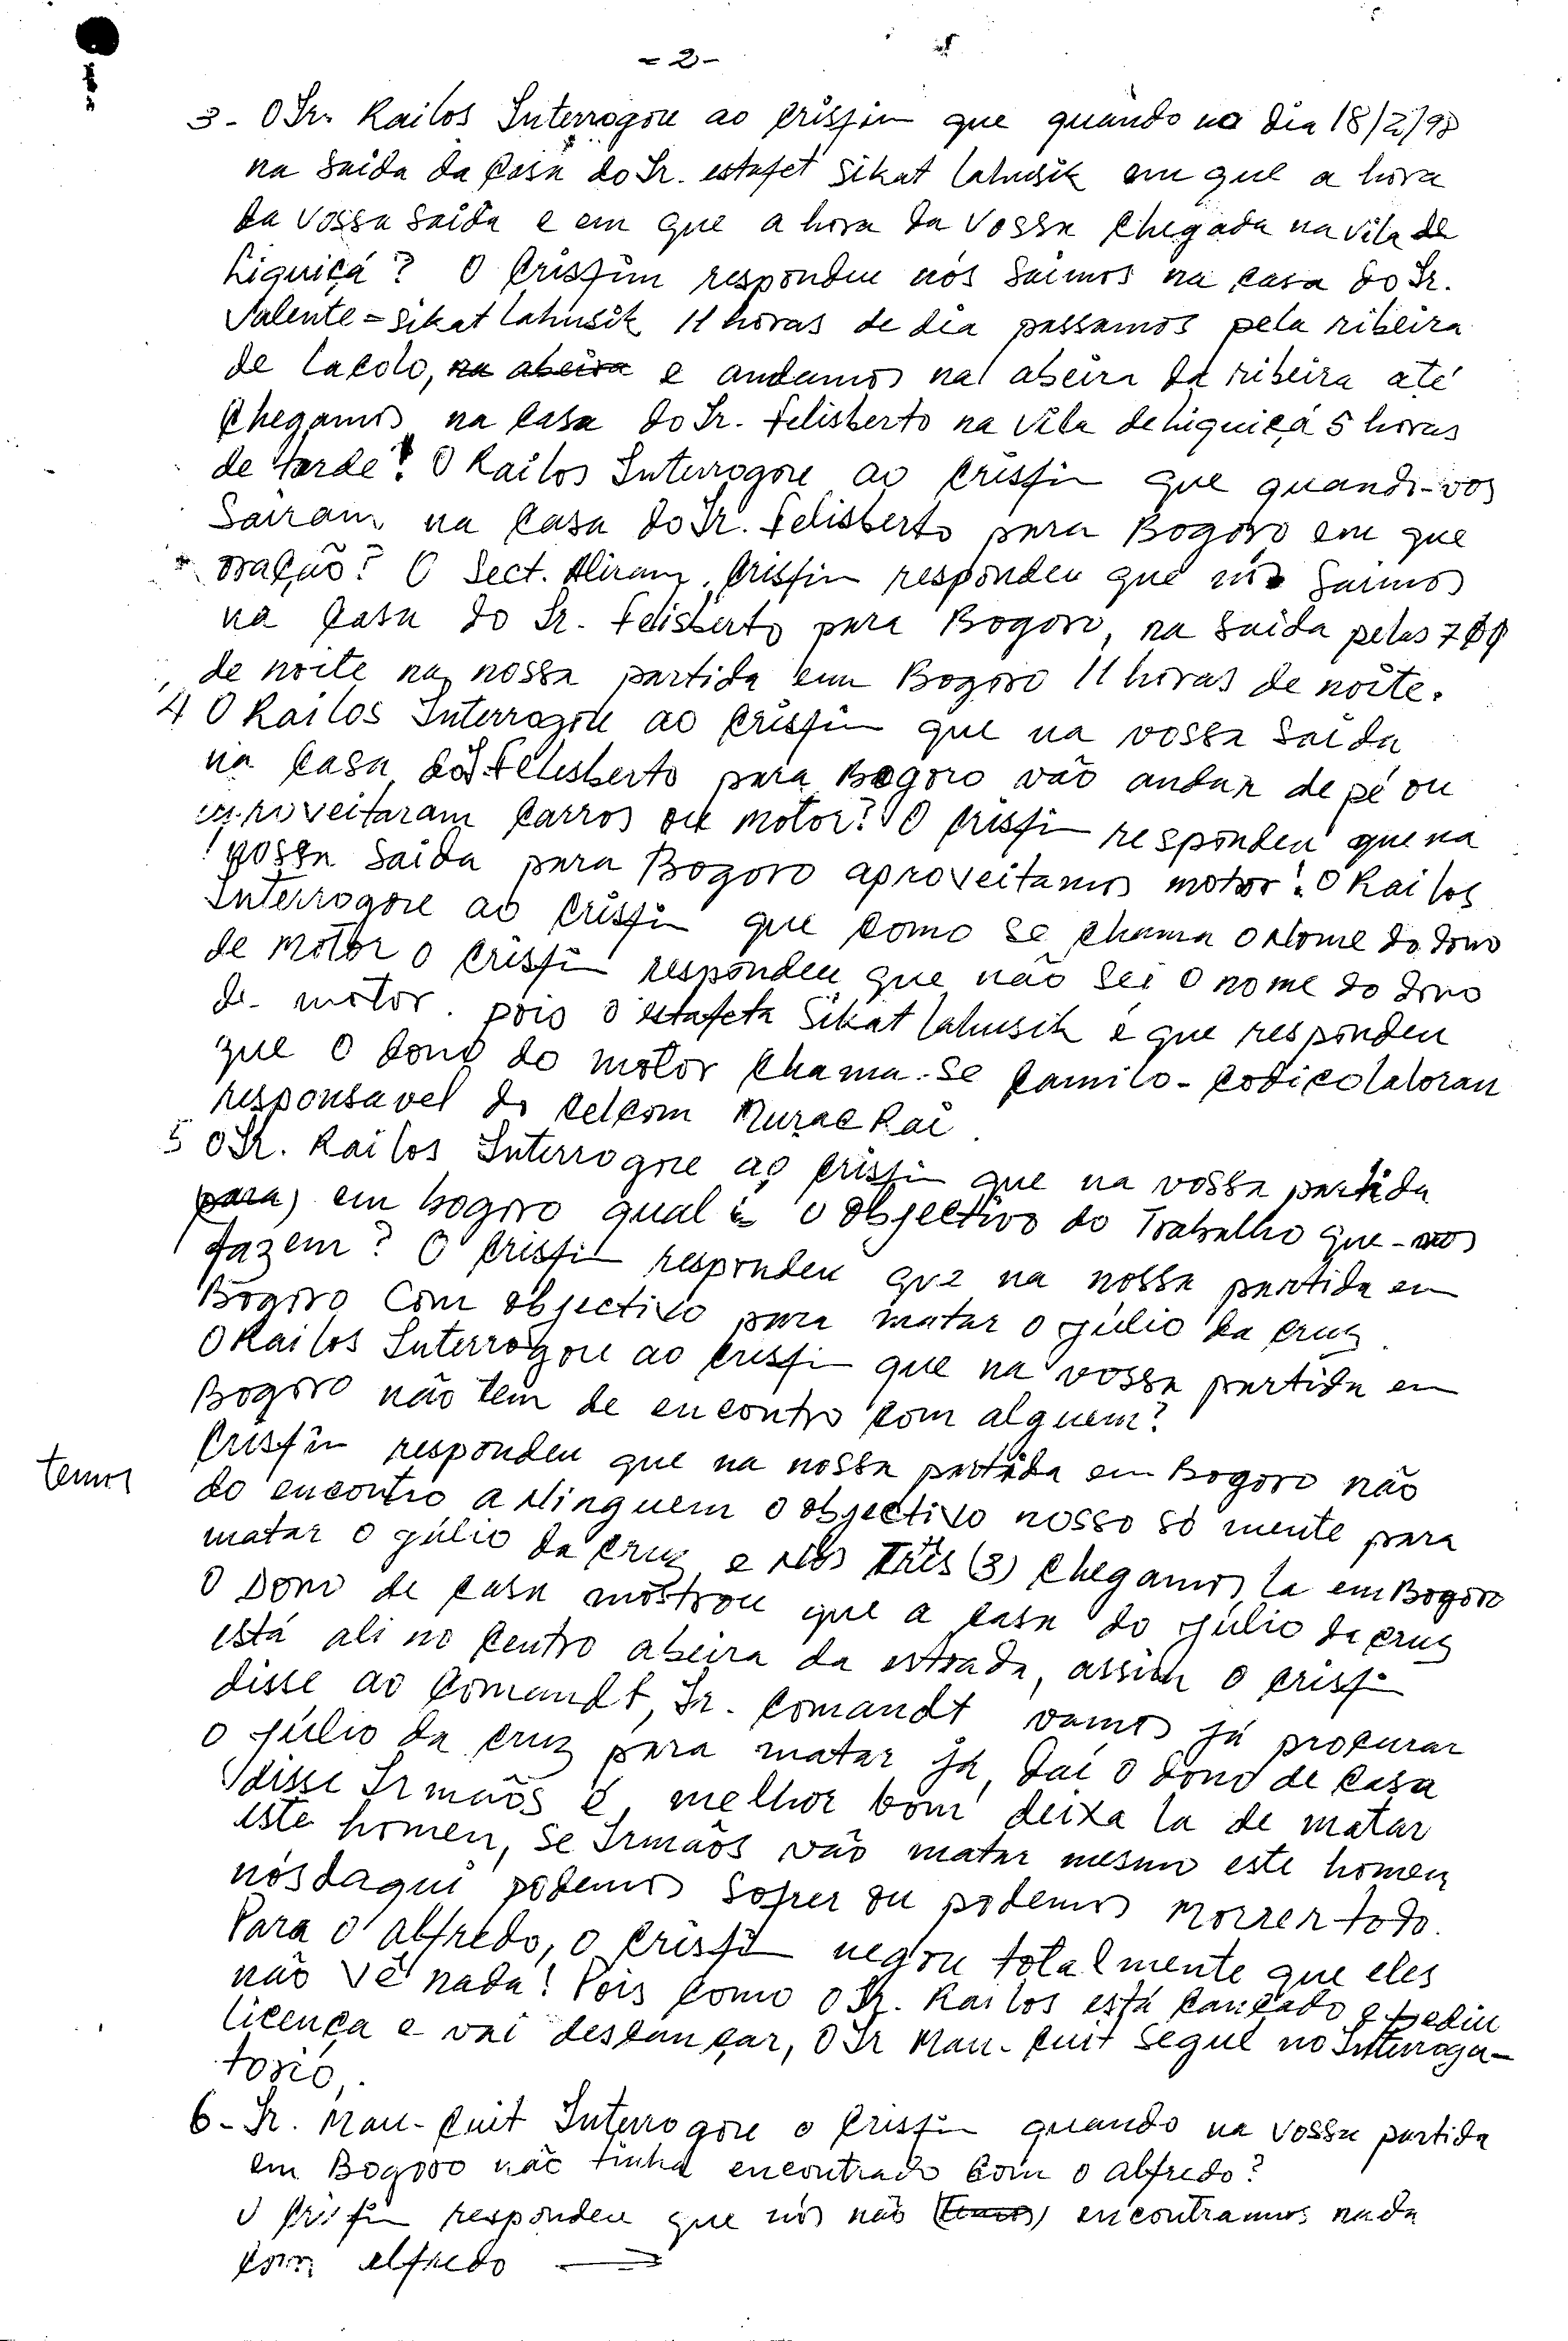 - 2 -
3 - O Sr. Railos Interrogou ao Crisfin que quando no dia 18/2/98
na saida da Casa do Sr. estafet Sikat lahusik em que a hora
da vossa saida e em que a hora da vossa chegada na vila de
Liquiçá? O Crisfin respondeu nós saimos na casa do Sr.
Valente = Sikat lahusik 11 horas de dia passamos pela ribeira
de lacolo, na abeira e andamos na abeira da ribeira até
chegamos na casa do Sr. felisberto na vila de Liquiçá 5 horas
de tarde! O Railos Interrogou ao Crisfin que quando-vos
Sairam na casa do Sr. felisberto para Bogoro em que
oração? O Sect. Crisfin respondeu que nós saimos
na casa do Sr. felisberto para Bogoro, na saida pelas 700
de noite na nossa partida em Bogoro 11 horas de noite.
4 O Railos Interrogou ao Crisfin que na vossa saida
na casa do Sr. felisberto para Bogoro vão andar de pé ou
aproveitaram carros ou motor? O Crisfin respondeu que na
nossa saida para Bogoro aproveitamos motor! O Railos
Interrogou ao Crisfin que como se chama o Nome do dono
de motor o Crisfin respondeu que não sei o nome do dono
de motor. pois o estafeta Sikat lahusik é que respondeu
que o dono do motor chama-se Camilo - codico laloran
responsavel do celcom Murac Rai.
5 O Sr. Railos Interrogou ao Crisfin que na vossa partida
(para) em bogoro qual é o objectivo do Trabalho que - vos
fazem? O Crisfin respondeu que na nossa partida em
Bogoro Com objectivo para matar o júlio da cruz.
O Railos Interrogou ao Crisfin que na vossa partida em
Bogoro não tem de encontro com alguem?
Crisfin respondeu que na nossa partida em Bogoro não
temos
do encontro a Ninguem o objectivo nosso só mente para
matar o júlio da cruz e Nós Três (3) chegamos la em Bogoro
O Dono de casa mostrou que a casa do júlio da cruz
está ali no centro abeira da estrada, assim o Crisfin
disse ao Comandt, Sr. Comandt vamos já procurar
o júlio da cruz para matar já, daí o dono de casa
disse Irmãos é, melhor bom deixa la de matar
este homen, se Irmãos vão matar mesmo este homen
nós daqui podemos sofrer ou podemos morrer todo.
Para o alfredo, o Crisfin negou totalmente que eles
não vê nada! Pois como o Sr. Railos está cançado e pediu
licença e vai descançar, O Sr Mau-Cuit segue no Interroga-
torio.
6 - Sr. Mau-Cuit Interrogou o Crisfin quando na vossa partida
em Bogoro não tinha encontrado com o alfredo?
O Crisfin respondeu que nós não (temos) encontramos nada
com alfredo